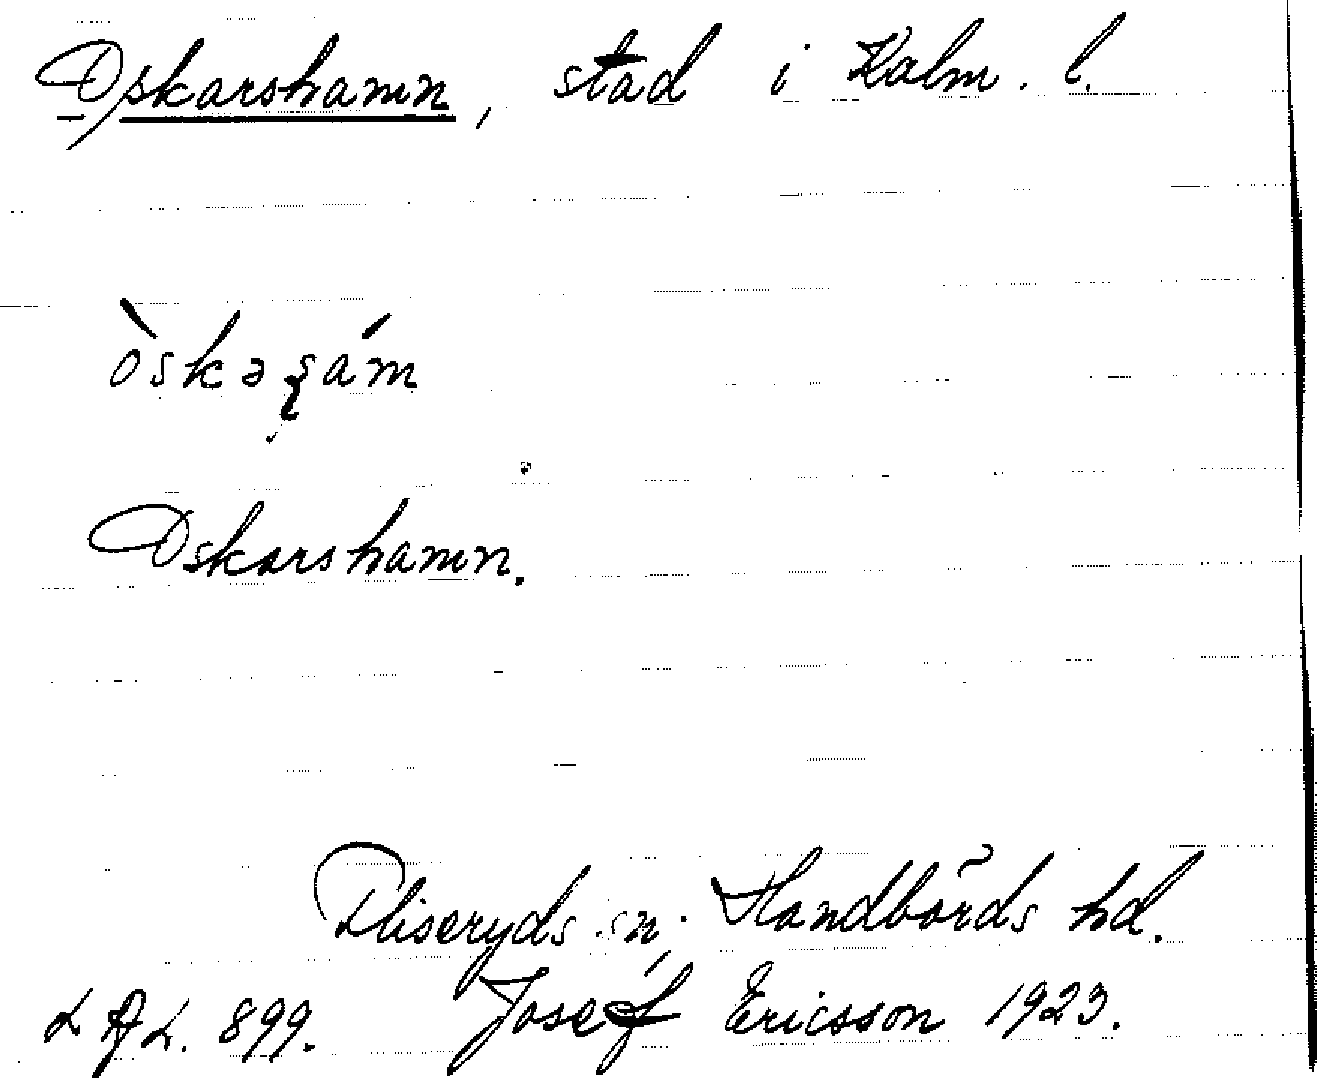 Oskarshamn, stad i Kalm. l.
òskəʂám
Oskarshamn.
Fliseryds sn, Handbörds hd.
LAL. 899. Josef Ericsson 1923.